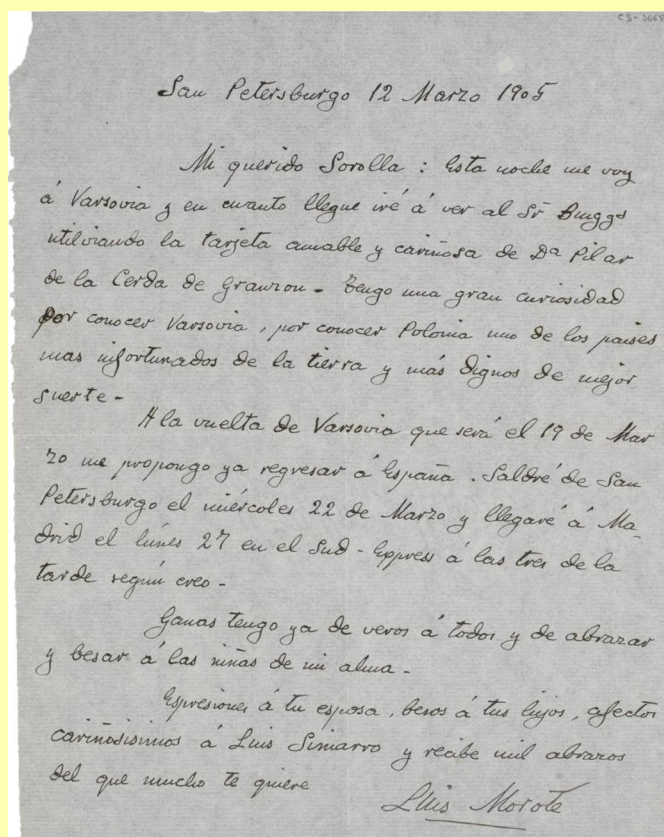 CS-3668
San Petersburgo 12 Marzo 1905
Mi querido Sorolla: Esta noche me voy
á Varsovia y en cuanto llegue iré á ver al Sr
utilizando la tarjeta amable y cariñosa de Dª Pilar
de la Cerda de - Tengo una gran curiosidad
por conocer Varsovia, por conocer Polonia uno de los paises
mas infortunados de la tierra y más dignos de mejor
suerte -
A la vuelta de Varsovia que será el 19 de Mar
zo me propongo ya regresar á España. Saldré de San
Petersburgo el miércoles 22 de Marzo y llegaré á Ma-
drid el lunes 27 en el Sud-Express á las tres de la
tarde según creo -
Ganas tengo ya de veros á todos y de abrazar
y besar á las niñas de mi alma -
Expresiones á tu esposa, besos á tus hijos, afectos
cariñosisimos á Luis Simarro y recibe mil abrazos
del que mucho te quiere
Luis Morote